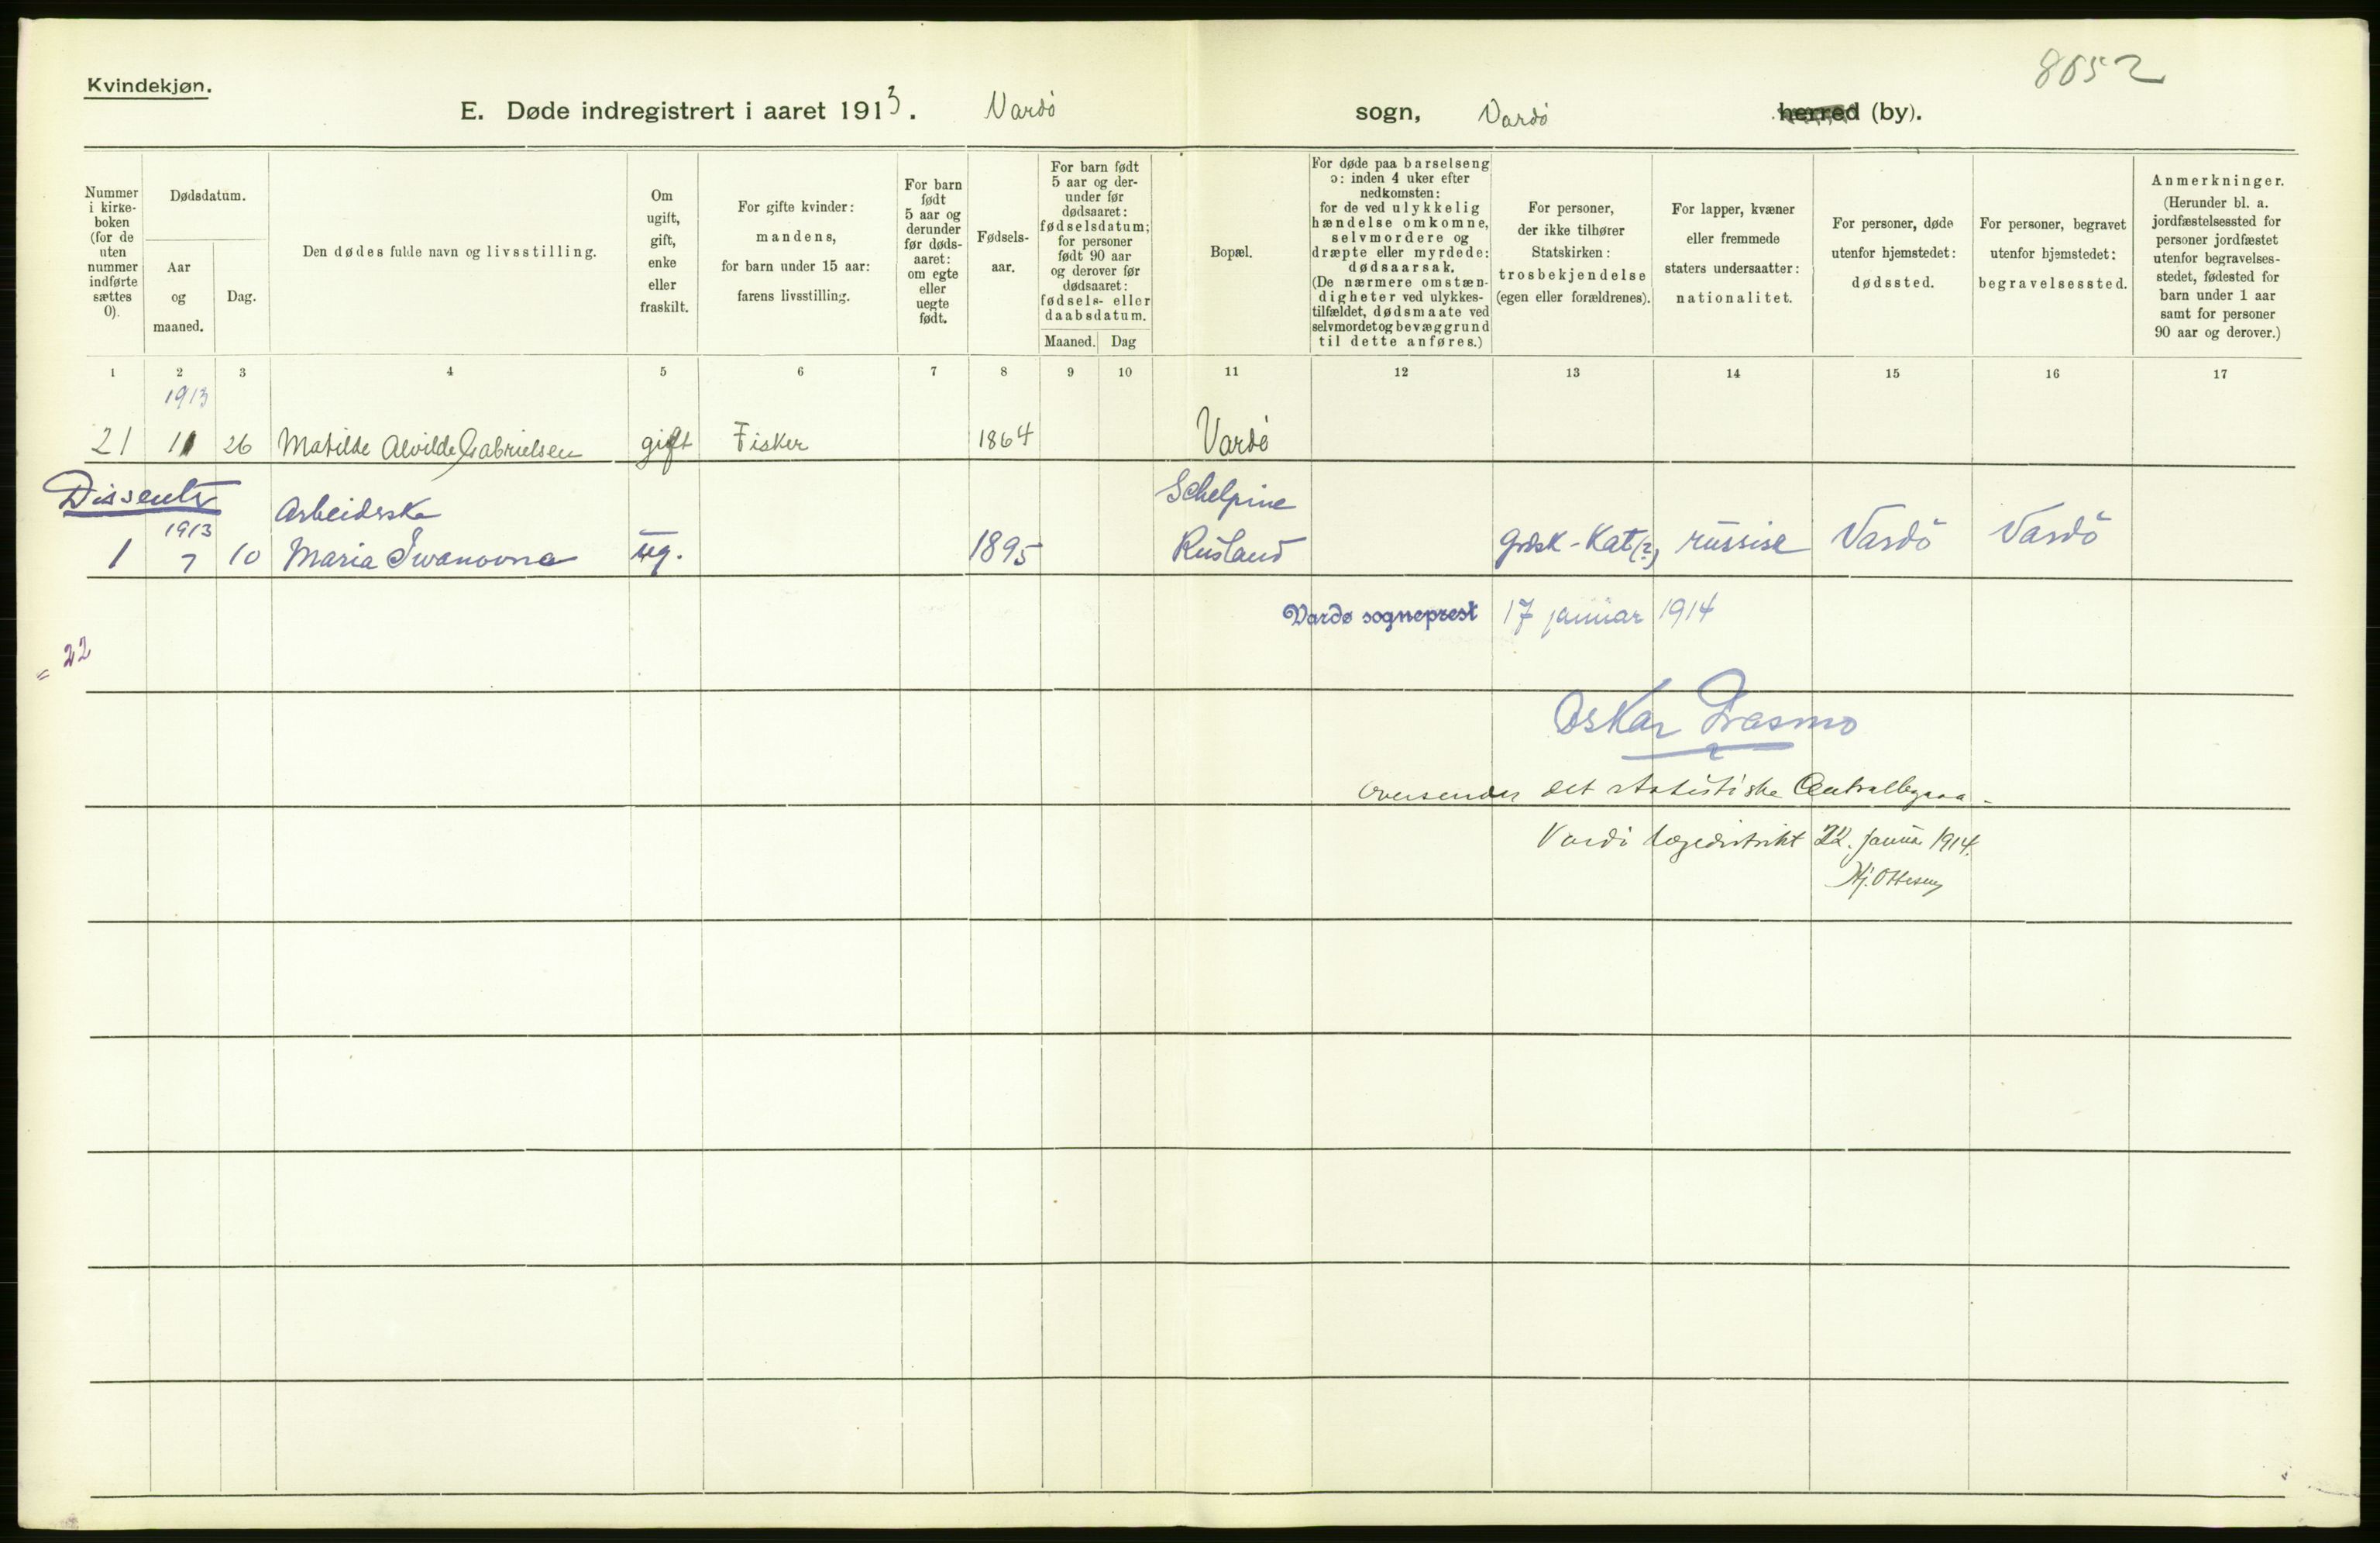 Kvindekjøn.
8652
E. Døde indregistrert i aaret 1913. Vardö sogn, Vardö herred (by).
Nummer
i kirke-
boken
(for de
uten
nummer
indførte
sættes
0).
Dødsdatum.
Aar
og
maaned.
Dag.
Den dødes fulde navn og livsstilling.
Om
ugift,
gift,
enke
eller
fraskilt.
For gifte kvinder:
mandens,
for barn under 15 aar:
farens livsstilling.
For barn
født
5 aar og
derunder
før døds-
aaret:
om egte
eller
uegte
født.
Fødsels-
aar.
For barn født
5 aar og der-
under før
dødsaaret:
fødselsdatum;
for personer
født 90 aar
og derover før
dødsaaret:
fødsels- eller
daabsdatum.
Maaned. Dag
Bopæl.
For døde paa barselseng
ɔ: inden 4 uker efter
nedkomsten:
for de ved ulykkelig
hændelse omkomne,
selvmordere og
dræpte eller myrdede:
dødsaarsak.
(De nærmere omstæn-
digheter ved ulykkes-
tilfældet, dødsmaate ved
selvmordet og bevæggrund
til dette anføres.)
For personer,
der ikke tilhører
Statskirken:
trosbekjendelse
(egen eller forældrenes).
For lapper, kvæner
eller fremmede
staters undersaatter:
nationalitet.
For personer, døde
utenfor hjemstedet:
dødssted.
For personer, begravet
utenfor hjemstedet:
begravelsessted.
Anmerkninger.
(Herunder bl. a.
jordfæstelsessted for
personer jordfæstet
utenfor begravelses-
stedet, fødested for
barn under 1 aar
samt for personer
90 aar og derover.)
1 2 3 4 5 6 7 8 9 10 11 12 13 14 15 16 17
1913
21 11 26 Matilde Alvilde Gabrielsen gift Fisker 1864 Vardö
Dissenter Arbeiderske Schelpine
1913
1 7 10 Maria Iwanovna ug. 1895 Rusland græsk-Kat(?) russisk Vardö Vardö
Vardø sogneprest 17 januar 1914
= 22
Oskar
Oversendes det statistiske Centralbyraa.
Vardö lægedistrikt 22. januar 1914.
Hj. Ottesen